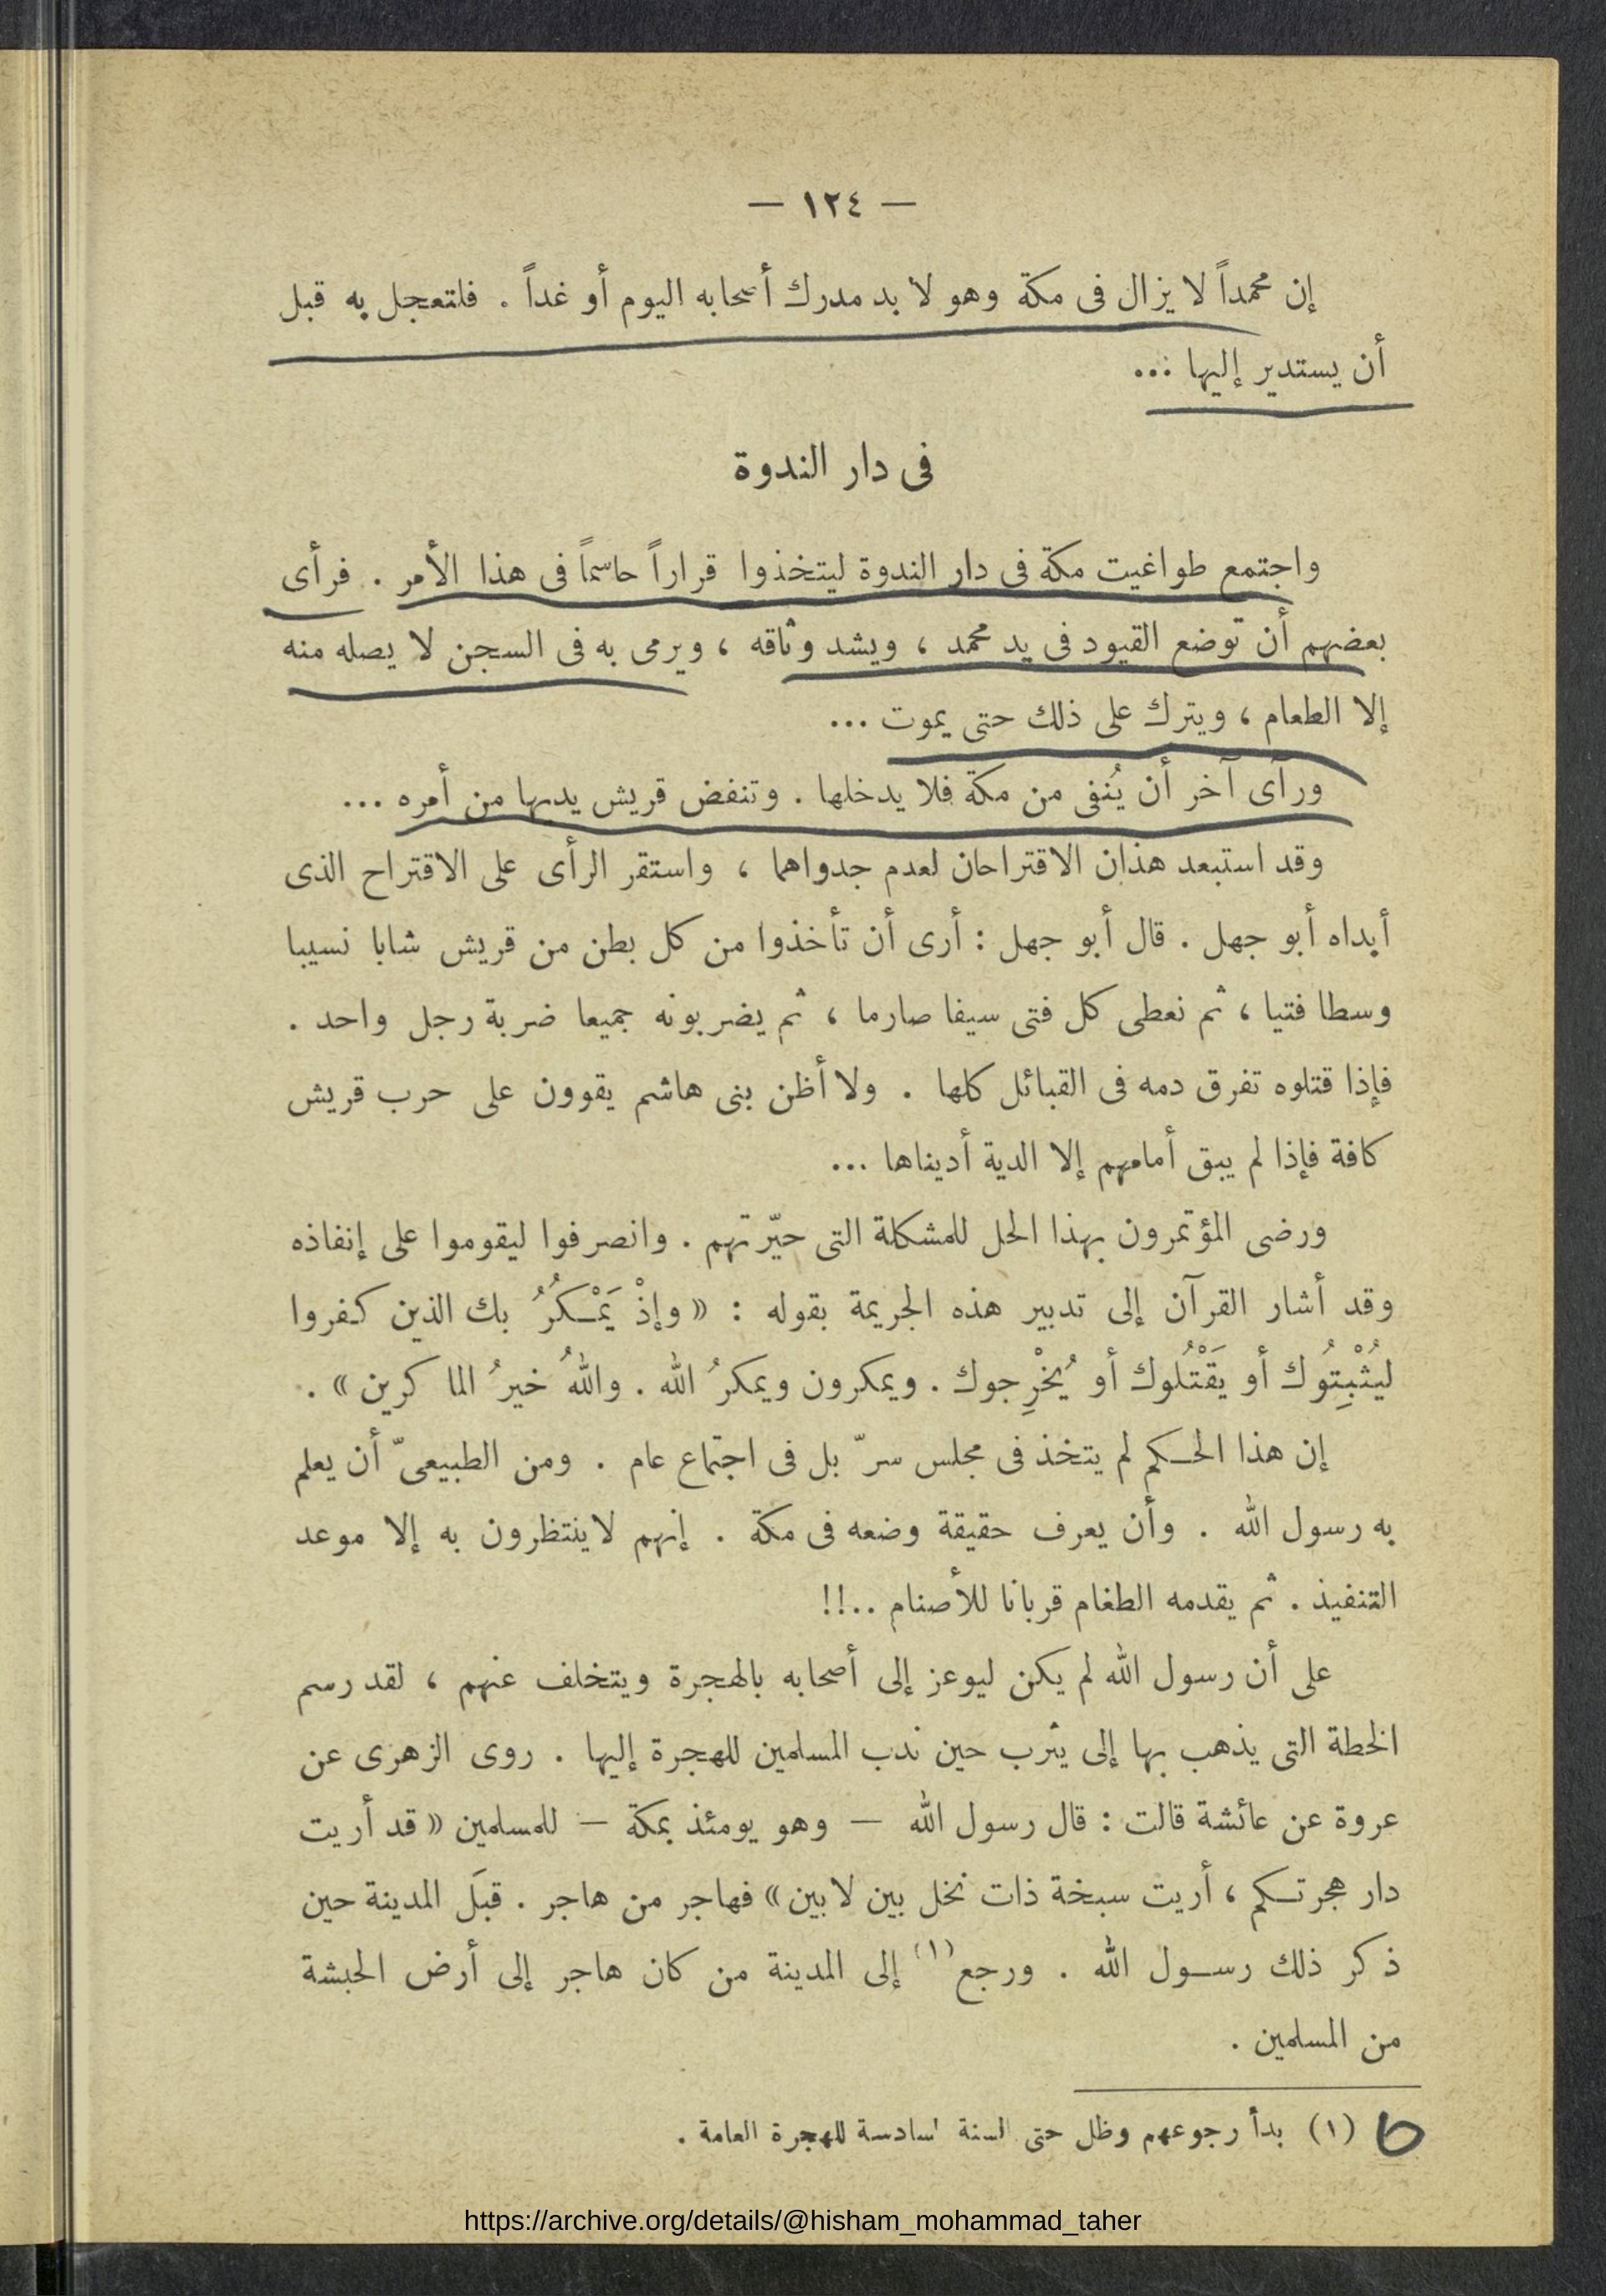 — ١٢٤ —
إن محمداً لا يزال فى مكة وهو لا بد مدرك أصحابه اليوم أو غداً . فلتعجل به قبل
أن يستدير إليها ...
فى دار الندوة
واجتمع طواغيت مكة فى دار الندوة ليتخذوا قراراً حاسماً فى هذا الأمر . فرأى
بعضهم أن توضع القيود فى يد محمد ، ويشد وثاقه ، ويرمى به فى السجن لا يصله منه
إلا الطعام ، ويترك على ذلك حتى يموت ...
ورأى آخر أن يُنفى من مكة فلا يدخلها . وتنفض قريش يديها من أمره ...
وقد استبعد هذان الاقتراحان لعدم جدواهما ، واستقر الرأى على الاقتراح الذى
أبداه أبو جهل . قال أبو جهل : أرى أن تأخذوا من كل بطن من قريش شابا نسيبا
وسطا فتيا ، ثم نعطى كل فتى سيفا صارما ، ثم يضربونه جميعا ضربة رجل واحد .
فإذا قتلوه تفرق دمه فى القبائل كلها . ولا أظن بنى هاشم يقوون على حرب قريش
كافة فإذا لم يبق أمامهم إلا الدية أديناها ...
ورضى المؤتمرون بهذا الحل للمشكلة التى حيّرتهم . وانصرفوا ليقوموا على إنفاذه
وقد أشار القرآن إلى تدبير هذه الجريمة بقوله : « وإذْ يَمْكرُ بك الذين كفروا
ليُثْبِتُوك أو يَقْتُلوك أو يُخْرِجوك . ويمكرون ويمكرُ الله . واللهُ خيرُ الماكرين » .
إن هذا الحكم لم يتخذ فى مجلس سرّ بل فى اجتماع عام . ومن الطبيعىّ أن يعلم
به رسول الله . وأن يعرف حقيقة وضعه فى مكة . إنهم لاينتظرون به إلا موعد
التنفيذ . ثم يقدمه الطغام قربانا للأصنام ..!!
على أن رسول الله لم يكن ليوعز إلى أصحابه بالهجرة ويتخلف عنهم ، لقد رسم
الخطة التى يذهب بها إلى يثرب حين ندب المسلمين للهجرة إليها . روى الزهرى عن
عروة عن عائشة قالت : قال رسول الله — وهو يومئذ بمكة — للمسلمين « قد أريت
دار هجرتكم ، أريت سبخة ذات نخل بين لابين » فهاجر من هاجر . قبَل المدينة حين
ذكر ذلك رسول الله . ورجع (١) إلى المدينة من كان هاجر إلى أرض الحبشة
من المسلمين .
(١) بدأ رجوعهم وظل حتى السنة السادسة للهجرة العامة .
https://archive.org/details/@hisham_mohammad_taher